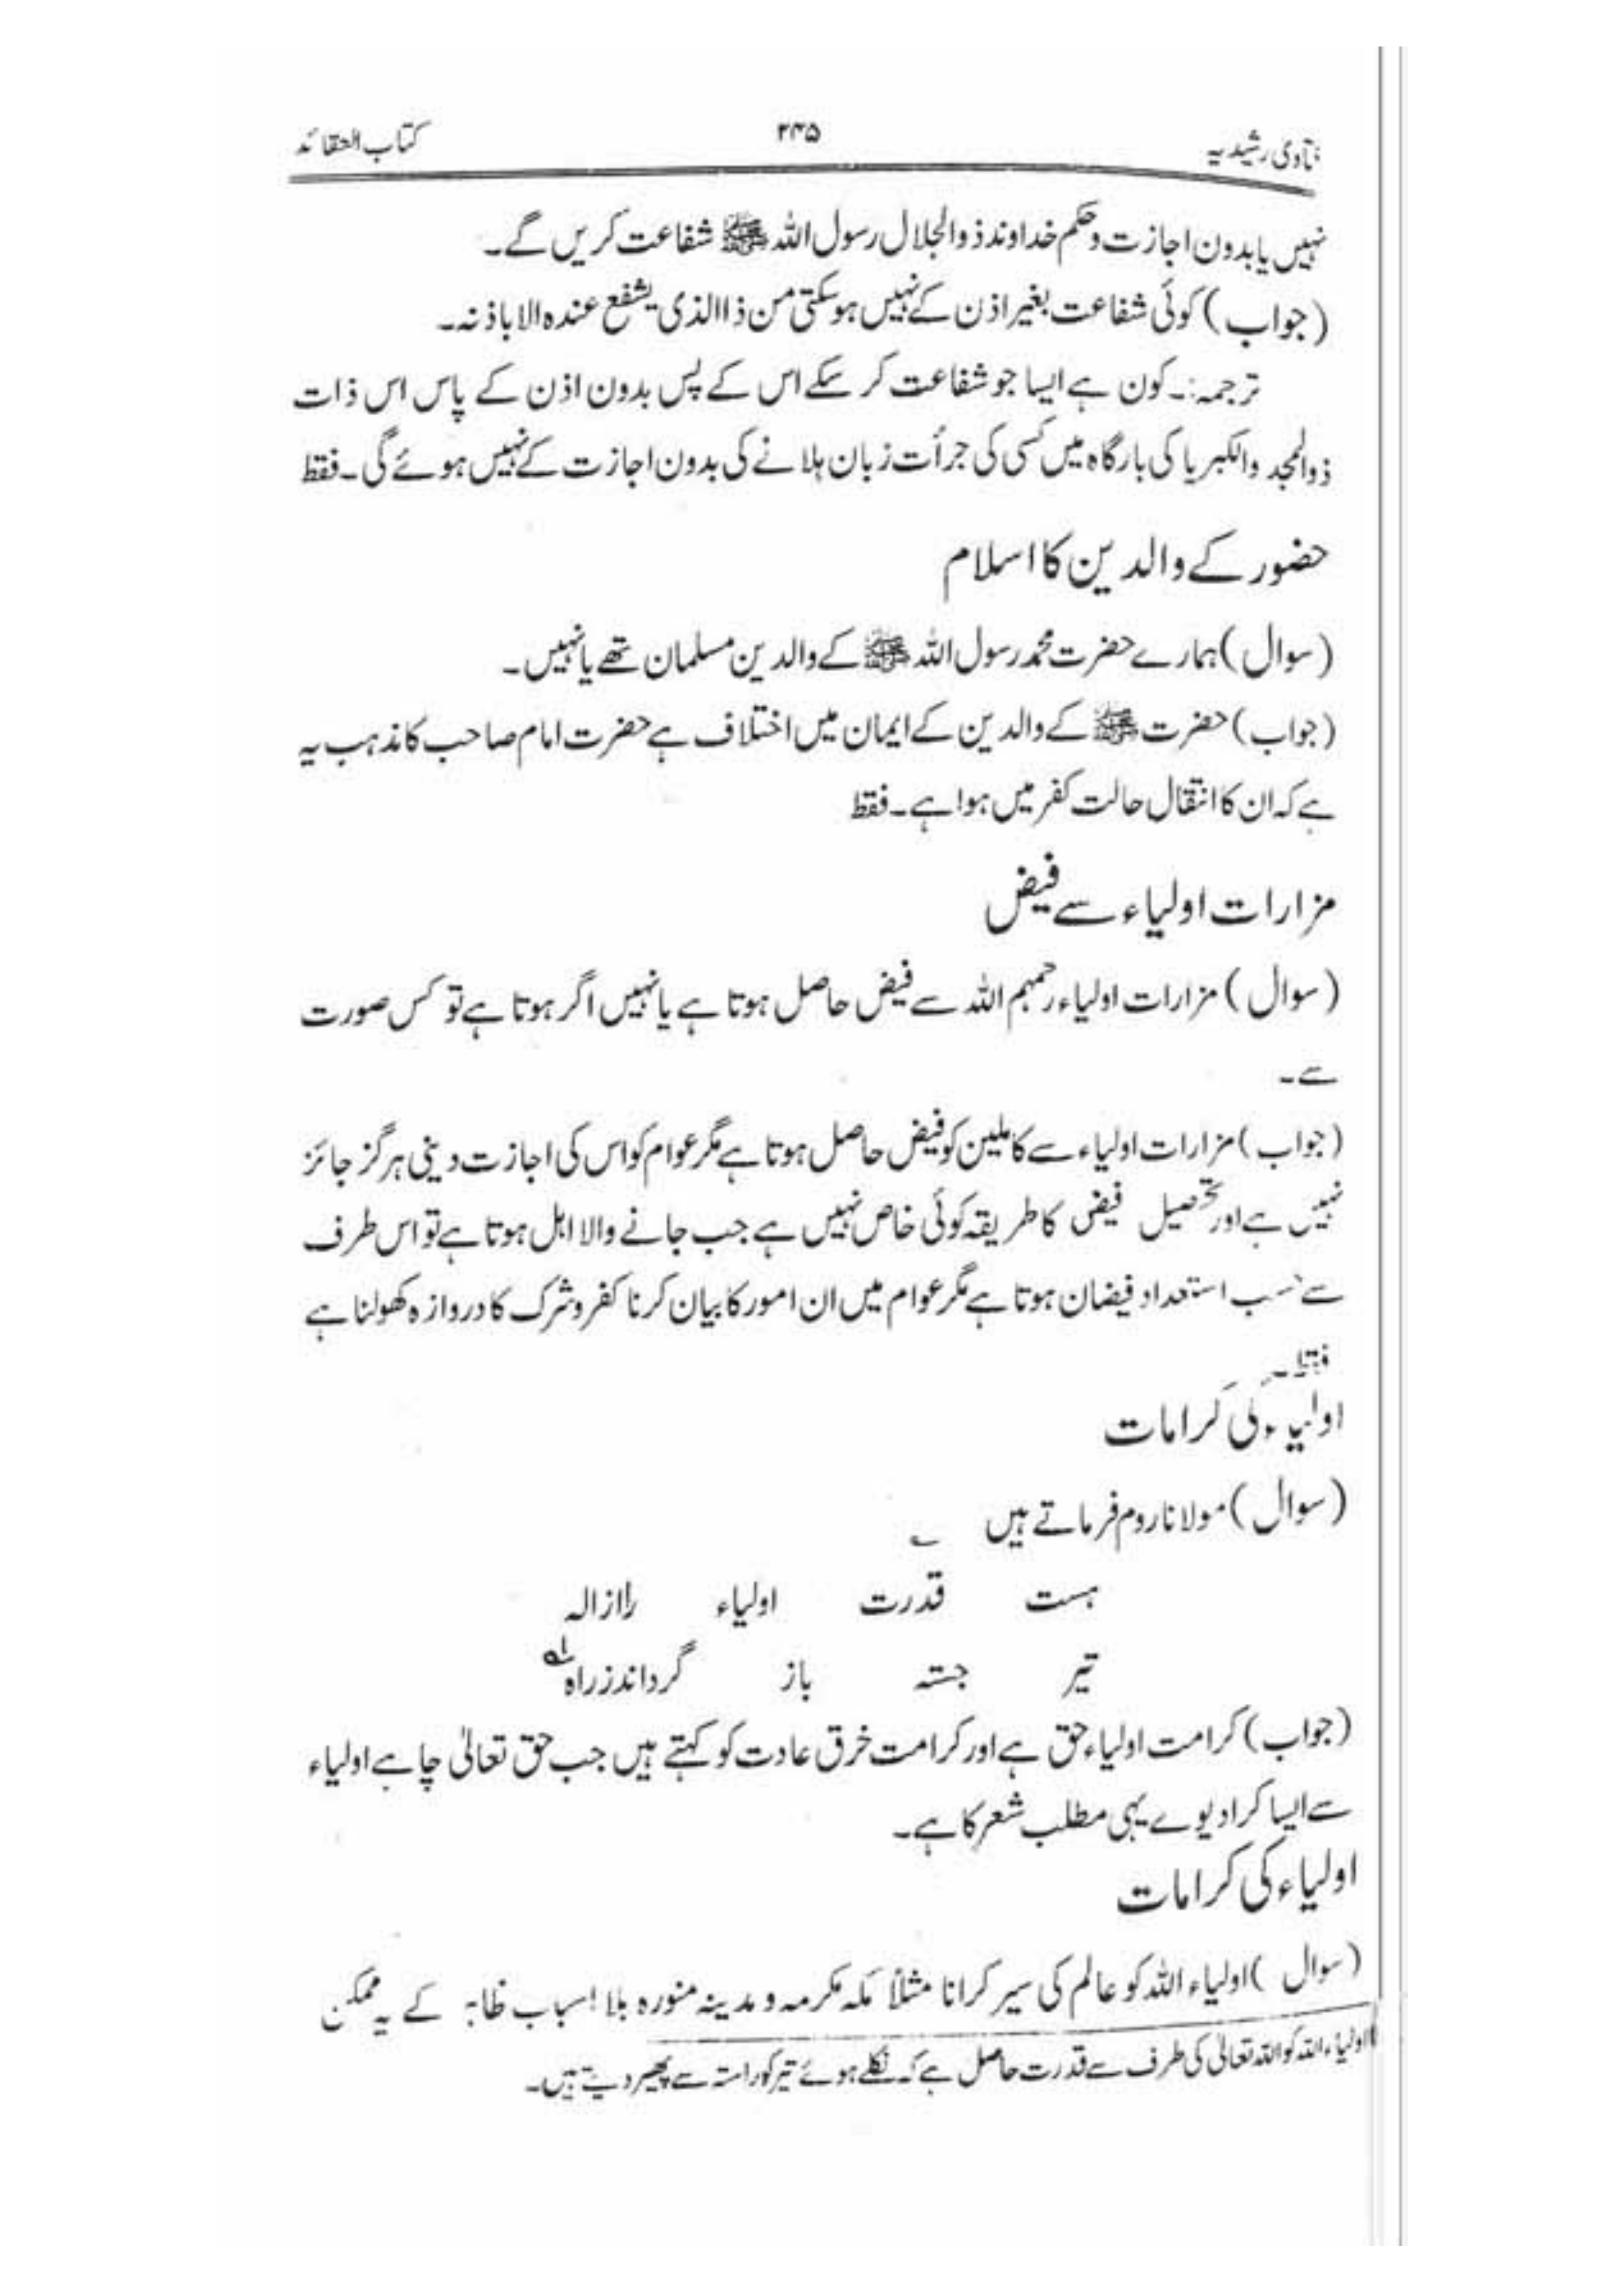 فتاوی رشیدیہ ۲۴۵ کتاب العقائد
نہیں یا بدون اجازت و حکم خداوند ذوالجلال رسول اللہ ﷺ شفاعت کریں گے۔
(جواب) کوئی شفاعت بغیر اذن کے نہیں ہو سکتی من ذا الذی یشفع عندہ الا باذنہ۔
ترجمہ:۔ کون ہے ایسا جو شفاعت کر سکے اس کے پس بدون اذن کے پاس اس ذات
ذوالمجد والکبریا کی بارگاہ میں کسی کی جرأت زبان ہلانے کی بدون اجازت کے نہیں ہوئے گی۔ فقط
حضور کے والدین کا اسلام
(سوال) ہمارے حضرت محمد رسول اللہ ﷺ کے والدین مسلمان تھے یا نہیں۔
(جواب) حضرت ﷺ کے والدین کے ایمان میں اختلاف ہے حضرت امام صاحب کا مذہب یہ
ہے کہ ان کا انتقال حالت کفر میں ہوا ہے۔ فقط
مزارات اولیاء سے فیض
(سوال) مزارات اولیاء رحمہم اللہ سے فیض حاصل ہوتا ہے یا نہیں اگر ہوتا ہے تو کس صورت
سے۔
(جواب) مزارات اولیاء سے کاملین کو فیض حاصل ہوتا ہے مگر عوام کو اس کی اجازت دینی ہرگز جائز
نہیں ہے اور تحصیل فیض کا طریقہ کوئی خاص نہیں ہے جب جانے والا اہل ہوتا ہے تو اس طرف
سے حسب استعداد فیضان ہوتا ہے مگر عوام میں ان امور کا بیان کرنا کفر و شرک کا دروازہ کھولنا ہے
فقط۔
اولیاء کی کرامات
(سوال) مولانا روم فرماتے ہیں ؎
ہست قدرت اولیاء را ازالہ
تیر جستہ باز گرداند زراہ
(جواب) کرامت اولیاء حق ہے اور کرامت خرق عادت کو کہتے ہیں جب حق تعالیٰ چاہے اولیاء
سے ایسا کرا دیوے یہی مطلب شعر کا ہے۔
اولیاء کی کرامات
(سوال) اولیاء اللہ کو عالم کی سیر کرانا مثلاً مکہ مکرمہ و مدینہ منورہ بلا اسباب ظاہر کے یہ ممکن
اولیاء اللہ کو اللہ تعالیٰ کی طرف سے قدرت حاصل ہے کہ نکلے ہوئے تیر کو راستہ سے پھیر دیتے ہیں۔